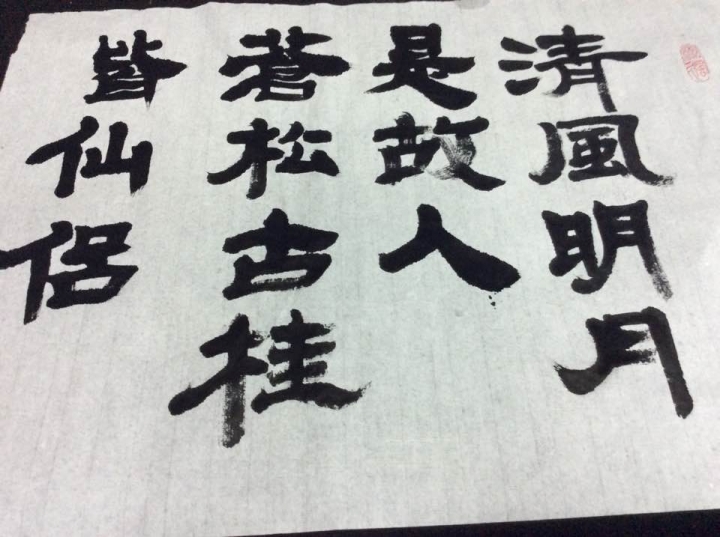 清風明月
是故人
蒼松古桂
皆仙侶